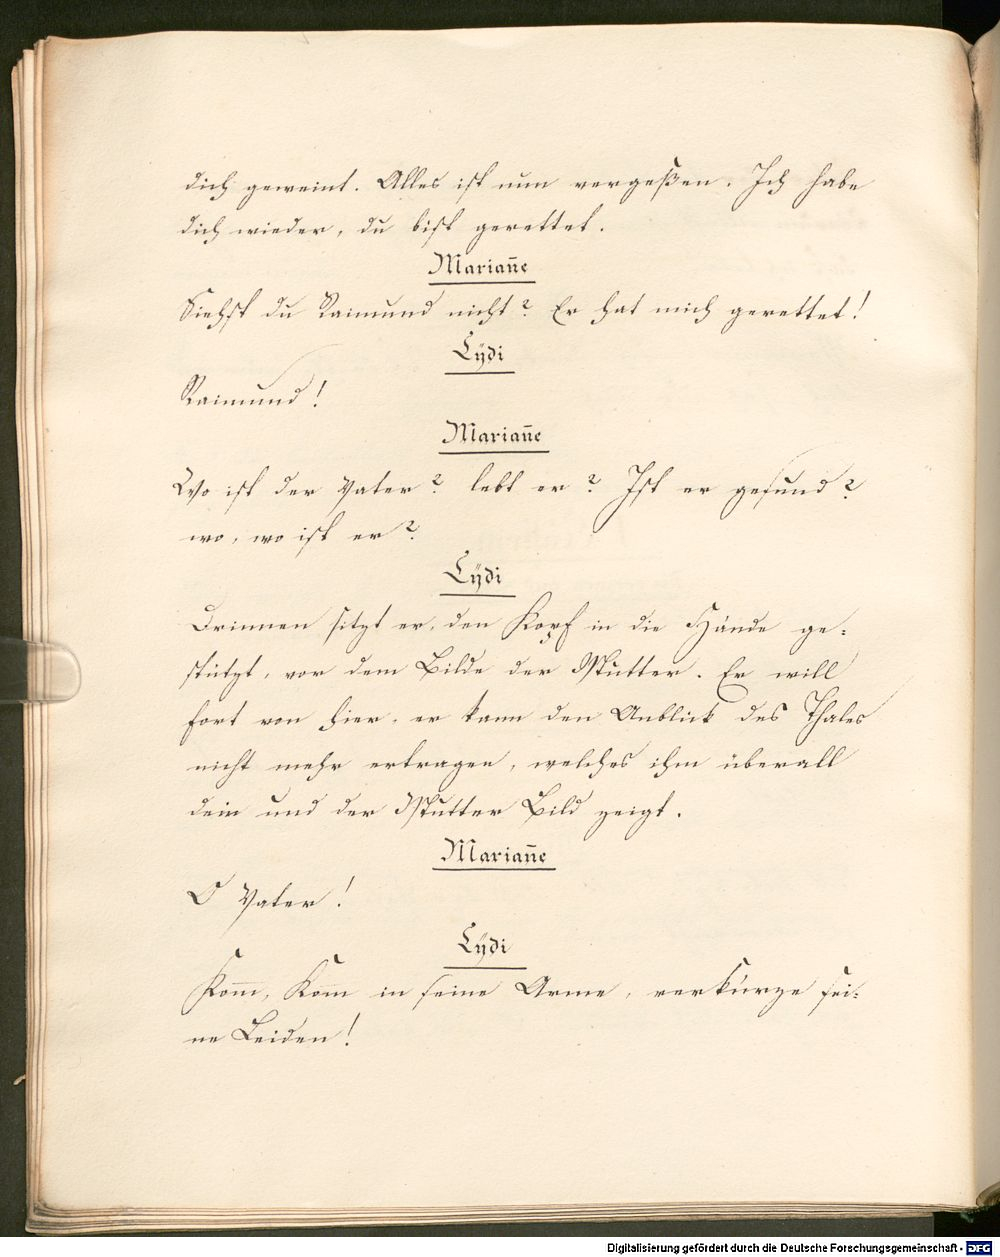 dich geweint. Alles ist nun vergeßen. Ich habe
dich wieder, du bist gerettet.
Mariañe
Siehst du Raimund nicht? Er hat mich gerettet!
Lÿdi
Raimund!
Mariañe
Wo ist der Vater? lebt er? Ist er gesund?
wo, wo ist er?
Lÿdi
Drinnen sitzt er, den Kopf in die Hände ge=
stützt, vor dem Bilde der Mutter. Er will
fort von hier, er kann den Anblick des Thales
nicht mehr ertragen, welches ihm überall
dein und der Mutter Bild zeigt.
Mariañe
O Vater!
Lÿdi
Kom̅, Kom̅ in seine Arme, verkürze sei=
ne Leiden!
Digitalisierung gefördert durch die Deutsche Forschungsgemeinschaft - DFG